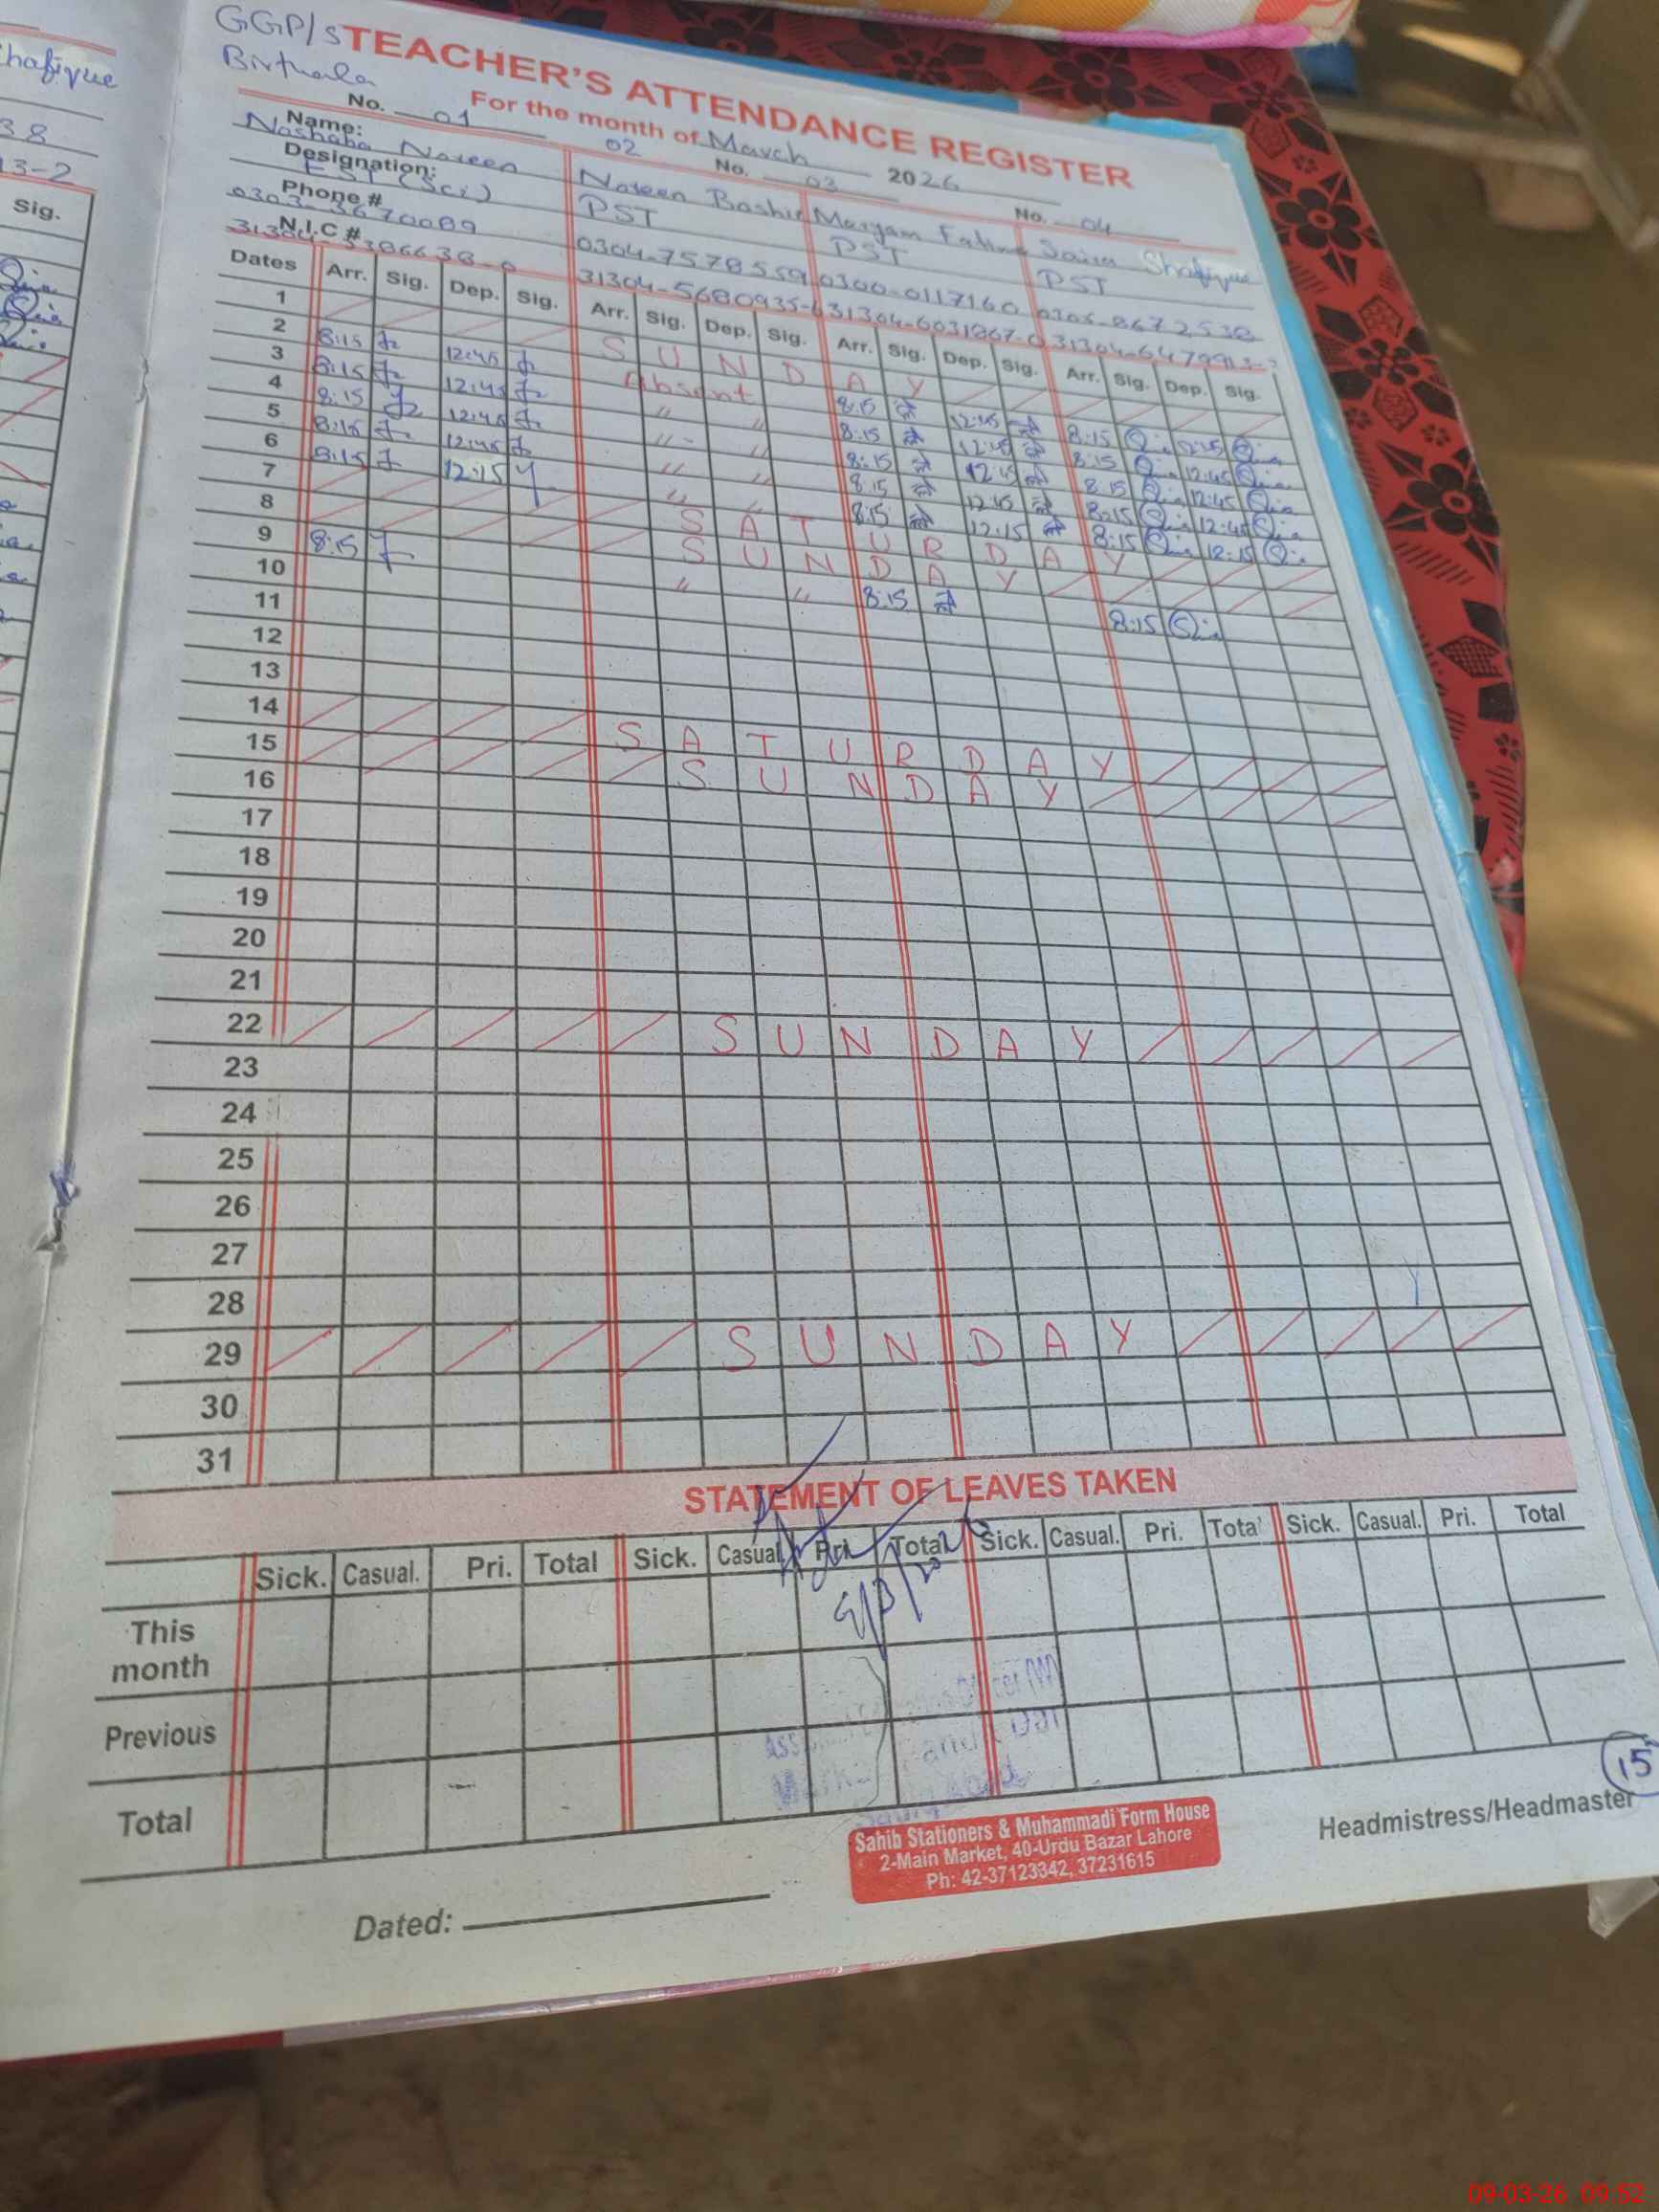 hafique
38
13-2
Sig.
GGP/S TEACHER'S ATTENDANCE REGISTER
Birthala
For the month of March 2026
No. 01 02 No. 03 No. 04
Name: Nashaba Noreen Noreen Bashir Maryam Fatima Saira Shafique
Designation: EST (Sci) PST PST PST
Phone # 0303-3670089 0304-7578559 0300-0117160 0305-8672538
N.I.C #
Dates Arr. Sig. Dep. Sig. Arr. Sig. Dep. Sig. Arr. Sig. Dep. Sig. Arr. Sig. Dep. Sig.
1 S U N D A Y
2 8:15 12:45 Absent 8:15 12:45 8:15 12:45
3 8:15 12:45 " " 8:15 12:45 8:15 12:45
4 8:15 12:45 " " 8:15 12:45 8:15 12:45
5 8:15 12:45 " " 8:15 12:45 8:15 12:45
6 8:15 12:15 " " 8:15 12:15 8:15 12:15
7 S A T U R D A Y
8 S U N D A Y
9 8:15 " " 8:15 8:15
10
11
12
13
14 S A T U R D A Y
15 S U N D A Y
16
17
18
19
20
21
22 S U N D A Y
23
24
25
26
27
28
29 S U N D A Y
30
31
STATEMENT OF LEAVES TAKEN
Sick. Casual. Pri. Total Sick. Casual. Pri. Total Sick. Casual. Pri. Total Sick. Casual. Pri. Total
9/3/2026
This
month
Previous
Total
Sahib Stationers & Muhammadi Form House
2-Main Market, 40-Urdu Bazar Lahore
Ph: 42-37123342, 37231615
15
Headmistress/Headmaster
Dated:
09-03-26 09:52